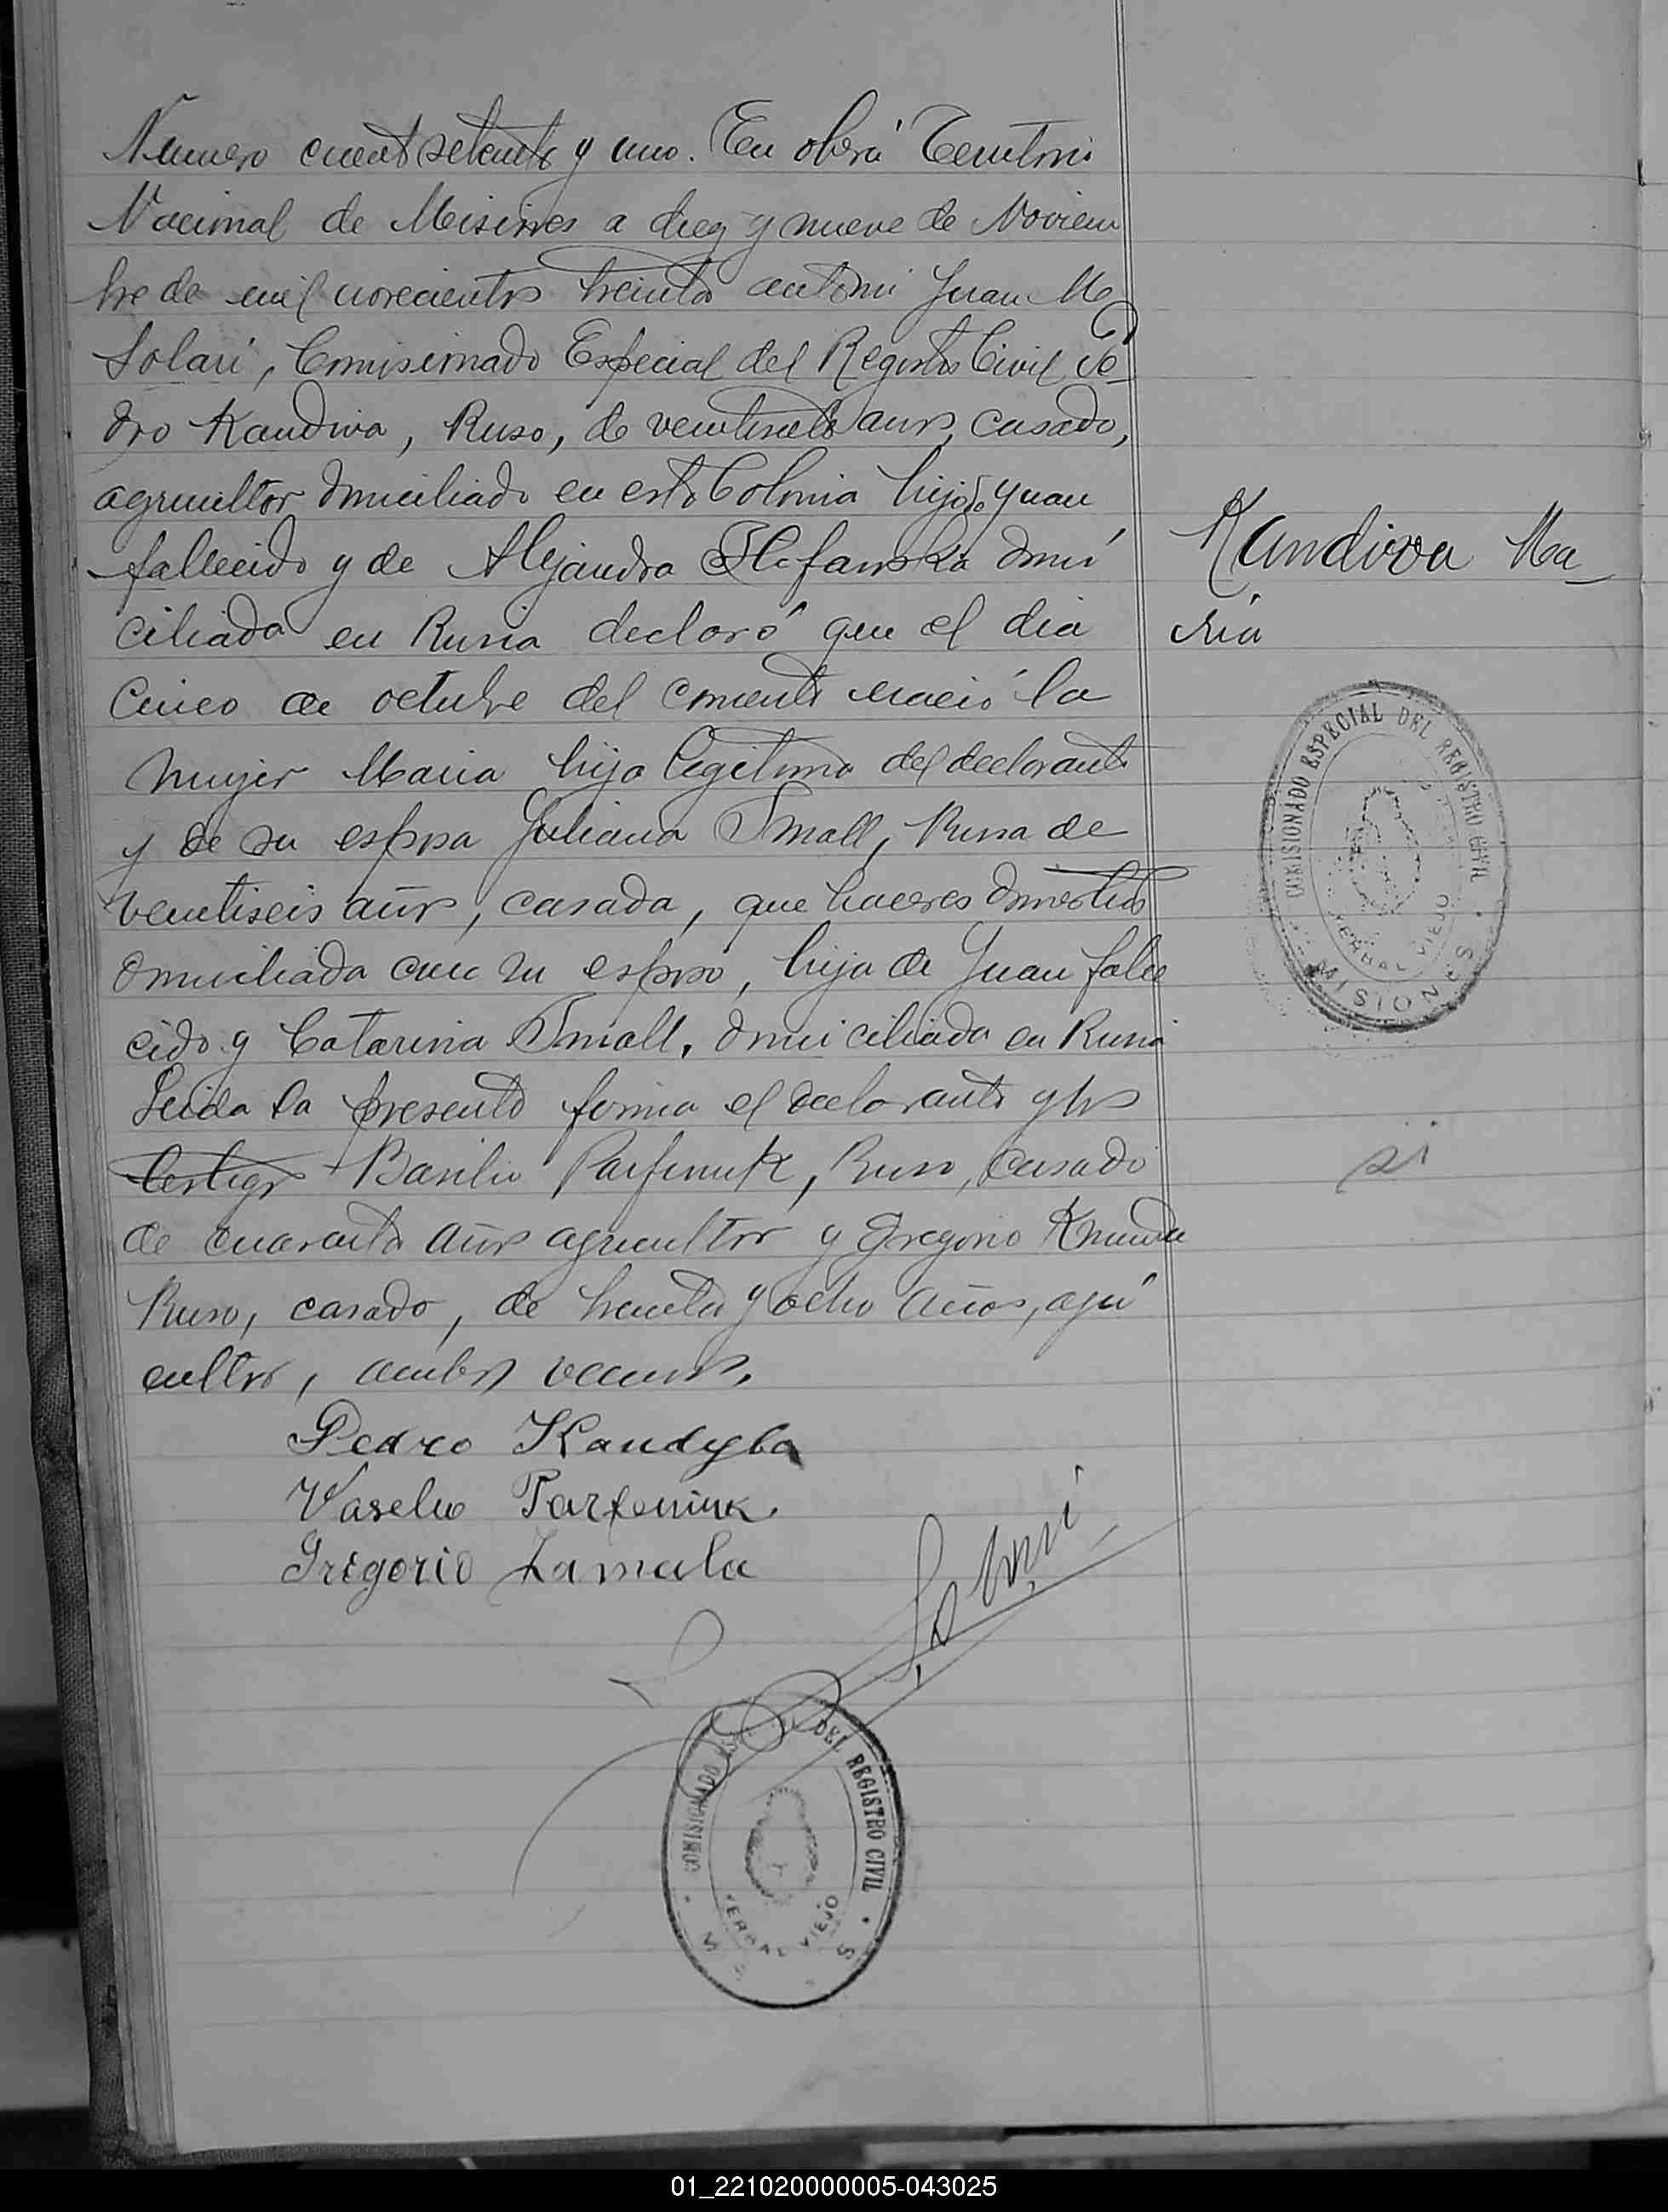 Numero ciento setenta y uno. En oberá Territorio
Nacional de Misiones a diez y nueve de Noviem
bre de mil novecientos treinta ante mi Juan M.
Solari, Comisionado Especial del Registro Civil Pe
dro Kandiva, Ruso, de veintisiete años, casado,
agricultor domiciliado en esta Colonia hijo de Juan
fallecido y de Alejandra domi
ciliada en Rusia declaró que el dia
Cinco de octubre del corriente nació la
mujer Maria hija legitima del declarante
y de su esposa Juliana Small, Rusa de
veintiseis años, casada, que haceres domesticos
domiciliada con su esposo, hija de Juan falle
cido y Catarina Small, domiciliada en Rusia
Leida la presente firma el declarante y los
testigos Basilio Parfenuk, Ruso, casado
de cuarenta años agricultor y Gregorio
Ruso, casado, de treinta y ocho años, agri
cultor, ambos vecinos.
Pedro Kandyba
Vaselio Parfeniuk
Gregorio Zamula
Solari
Kandiva Ma_
ria
COMISIONADO ESPECIAL DEL REGISTRO CIVIL
YERBAL VIEJO
MISIONES
si
COMISIONADO ESP DEL REGISTRO CIVIL
YERBAL VIEJO
M S S
01_221020000005-043025